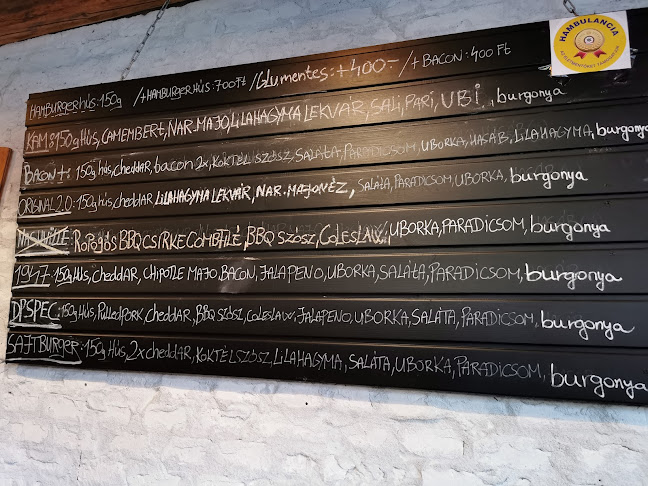 HAMBURGERHÚS: 150g /+HAMBURGERHÚS: 700Ft /Glumentes: +400- /+BACON: 400 Ft
KAM: 150g HÚS, CAMEMBERT, NAR. MAJO, LILAHAGYMA LEKVÁR, SALI, PARI, UBI, burgonya
BACON+: 150g hús, cheddar, bacon 2x, KOKTÉLSZÓSZ, SALÁTA, PARADICSOM, UBORKA, HASÁB, LILAHAGYMA, burgonya
ORIGINAL 2.0: 150g hús, cheddar, LILAHAGYMA LEKVÁR, NAR. MAJONÉZ, SALÁTA, PARADICSOM, UBORKA, burgonya
NASHVILLE: ROPOGÓS BBQ CSIRKE COMBFILÉ, BBQ SZÓSZ, COLESLAW, UBORKA, PARADICSOM, burgonya
1947: 150g HÚS, CHEDDAR, CHIPOTLE MAJO, BACON, JALAPENO, UBORKA, SALÁTA, PARADICSOM, burgonya
DPSPEC: 150g HÚS, PulledPORK, cheddar, BBQ SZÓSZ, COLESLAW, JALAPENO, UBORKA, SALÁTA, PARADICSOM, burgonya
SAJTBURGER: 150g HÚS, 2x cheddar, KOKTÉLSZÓSZ, LILAHAGYMA, SALÁTA, UBORKA, PARADICSOM, burgonya
HAMBULANCIA